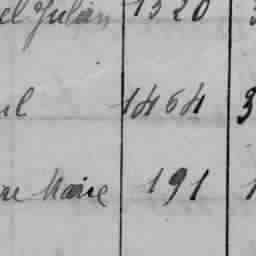 el Julian 1320 3
ul 1464 3
re Marie 191 1